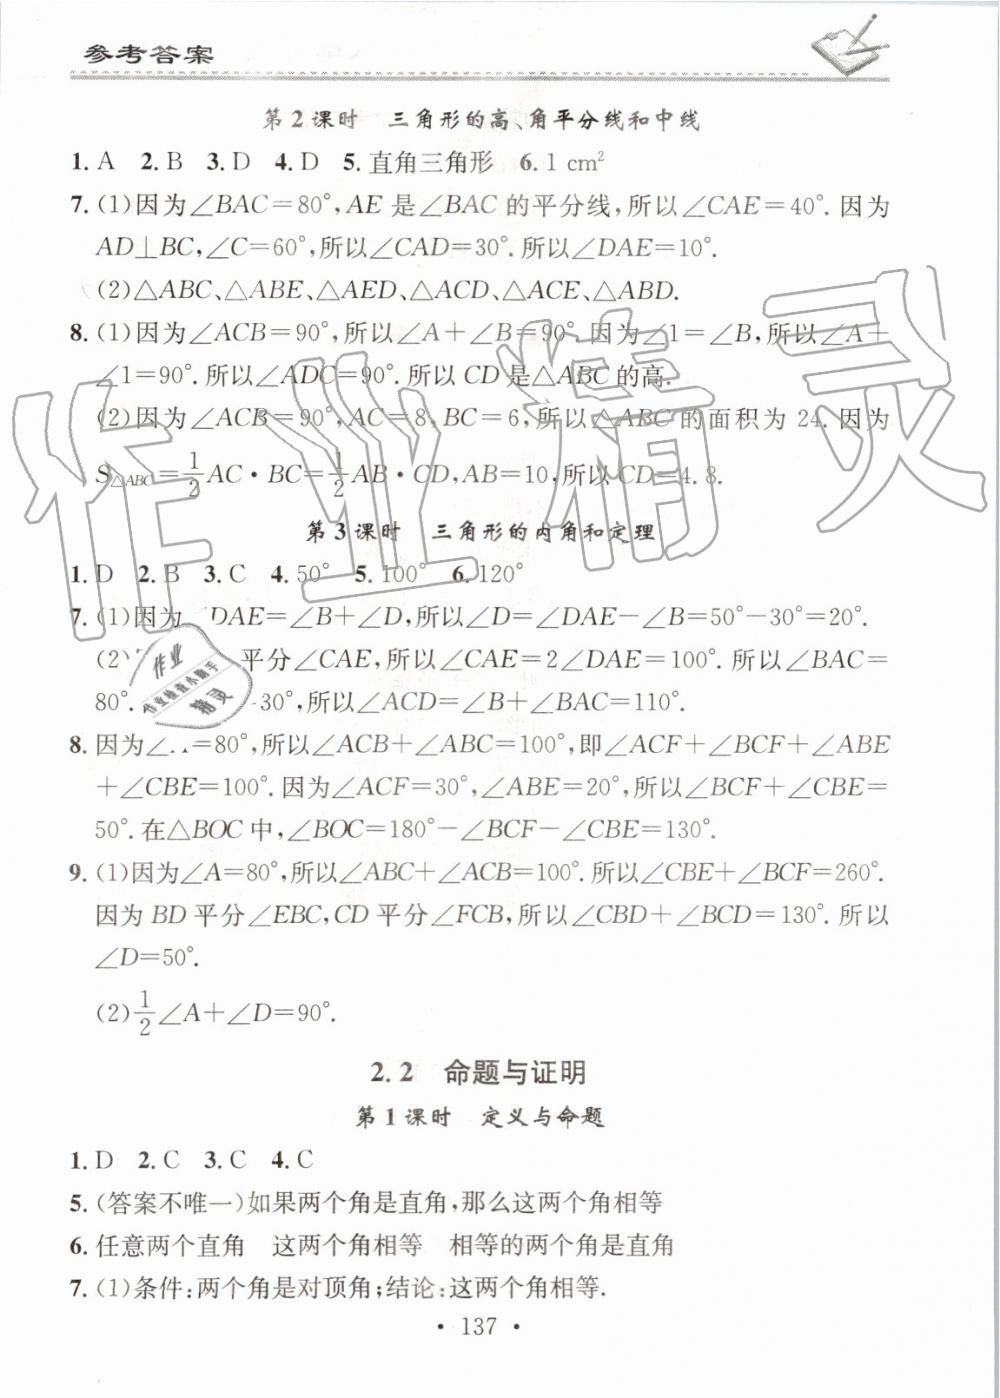 参考答案
第2课时 三角形的高、角平分线和中线
1. A 2. B 3. D 4. D 5. 直角三角形 6. 1 cm²
7. (1)因为∠BAC=80°,AE 是∠BAC 的平分线,所以∠CAE=40°. 因为
AD⊥BC,∠C=60°,所以∠CAD=30°. 所以∠DAE=10°.
(2)△ABC、△ABE、△AED、△ACD、△ACE、△ABD.
8. (1)因为∠ACB=90°,所以∠A+∠B=90°. 因为∠1=∠B,所以∠A+
∠1=90°. 所以∠ADC=90°. 所以 CD 是△ABC 的高.
(2)因为∠ACB=90°,AC=8,BC=6,所以△ABC 的面积为 24. 因为
S△ABC=1/2 AC·BC=1/2 AB·CD,AB=10,所以CD=4.8.
第3课时 三角形的内角和定理
1. D 2. B 3. C 4. 50° 5. 100° 6. 120°
7. (1)因为∠DAE=∠B+∠D,所以∠D=∠DAE-∠B=50°-30°=20°.
(2) 平分∠CAE,所以∠CAE=2∠DAE=100°. 所以∠BAC=
80°. 30°,所以∠ACD=∠B+∠BAC=110°.
8. 因为∠ =80°,所以∠ACB+∠ABC=100°,即∠ACF+∠BCF+∠ABE
+∠CBE=100°. 因为∠ACF=30°,∠ABE=20°,所以∠BCF+∠CBE=
50°. 在△BOC 中,∠BOC=180°-∠BCF-∠CBE=130°.
9. (1)因为∠A=80°,所以∠ABC+∠ACB=100°. 所以∠CBE+∠BCF=260°.
因为 BD 平分∠EBC,CD 平分∠FCB,所以∠CBD+∠BCD=130°. 所以
∠D=50°.
(2)1/2∠A+∠D=90°.
2.2 命题与证明
第1课时 定义与命题
1. D 2. C 3. C 4. C
5. (答案不唯一)如果两个角是直角,那么这两个角相等
6. 任意两个直角 这两个角相等 相等的两个角是直角
7. (1)条件:两个角是对顶角;结论:这两个角相等.
· 137 ·
作业精灵
作业
作业检查小助手
精灵